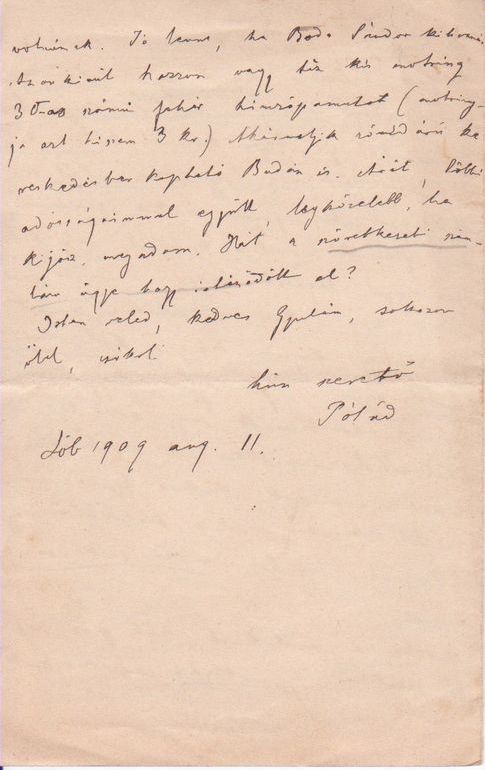 volnának. Jó lenne, ha Bede Nándor
Azonkivül hozzon vagy tiz kis motring
30-as számú fehér himzőpamutot (motring-
ja azt hiszem 3 kr.) Akármelyik rövidárú ke
reskedésben kapható Budán is. Árát, többi
adósságaimmal együtt, legközelebb, ha
kijösz, megadom. Hát a szövetkezeti szín-
ház ügye hogy intéződött el?
Isten veled, kedves Gyulám, sokszor
ölel, csókol
hűn szerető
Pólád
Sób 1909 aug. 11.